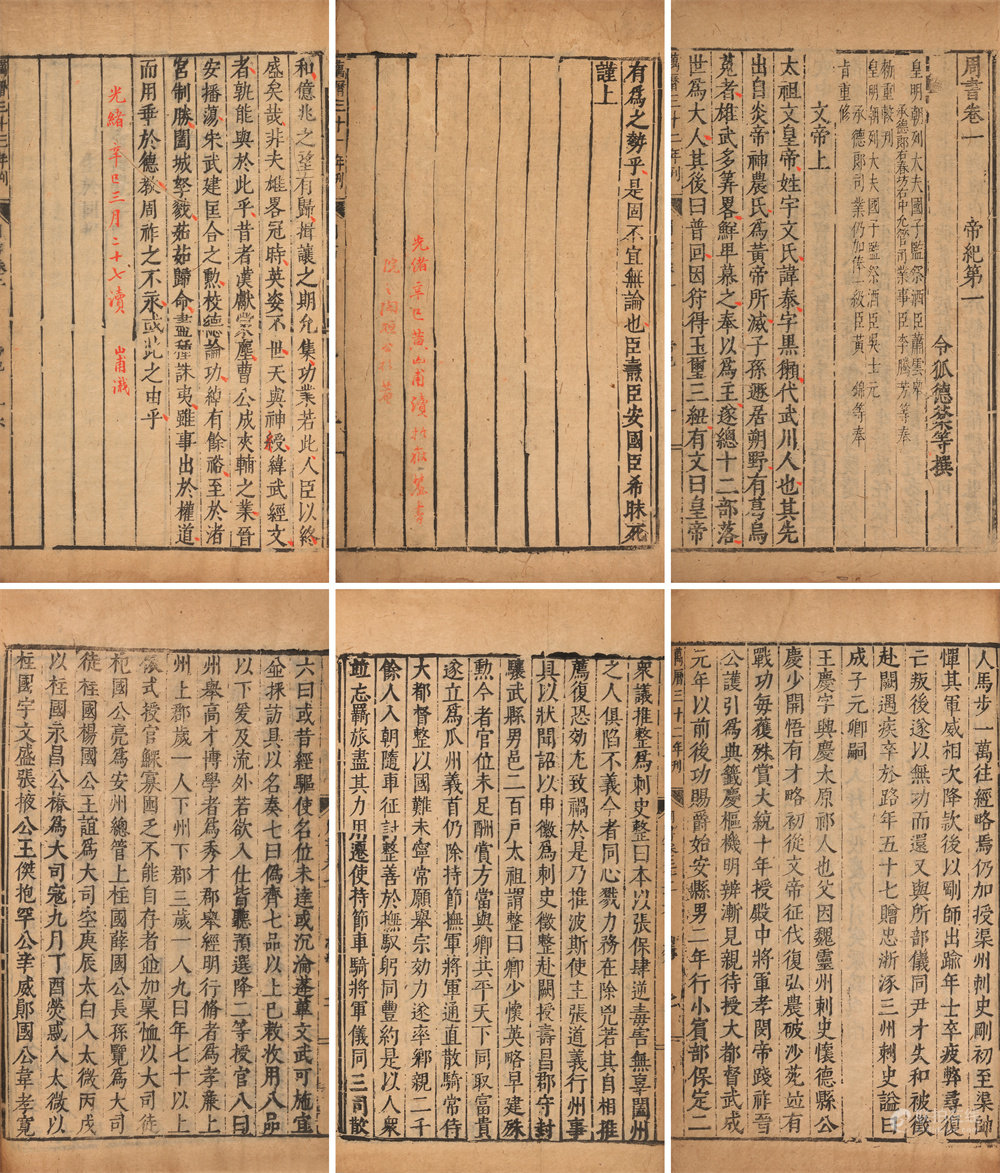 周書卷一 帝紀第一
令狐德棻等撰
皇明朝列大夫國子監祭酒臣蕭雲舉
承德郎右春坊右中允管司業事臣李騰芳等奉
勅重較刊
皇明朝列大夫國子監祭酒臣吳士元
承德郎司業仍加俸一級臣黃 錦等奉
旨重修
文帝上
太祖文皇帝姓宇文氏諱泰字黑獺代武川人也其先
出自炎帝神農氏爲黃帝所滅子孫遯居朔野有葛烏
菟者雄武多筭畧鮮卑慕之奉以爲主遂總十二部落
世爲大人其後曰普回因狩得玉璽三紐有文曰皇帝
萬曆三十二年刊
有爲之勢乎是固不宜無論也臣燾臣安國臣希昧死
謹上
光緒辛巳黃山甫讀於
院之
萬曆三十 年刊
和億兆之望有歸揖讓之期允集功業若此人臣以終
盛矣哉非夫雄畧冠時英姿不世天與神授緯武經文
者孰能與於此乎昔者漢獻蒙塵曹公成夾輔之業晉
安播蕩宋武建匡合之勲校德論功綽有餘裕至於渚
宮制勝闔城孥戮茹茹歸命盡種誅夷雖事出於權道
而用乖於德教周祚之不永或此之由乎
光緒辛巳三月二十七讀 山甫識
萬曆三十三年刊
人馬步一萬往經略焉仍加授渠州刺史剛初至渠帥
憚其軍威相次降款後以剛師出踰年士卒疲弊尋復
亡叛後遂以無功而還又與所部儀同尹才失和被徵
赴闕遇疾卒於路年五十七贈忠浙涿三州刺史謚曰
成子元卿嗣
王慶字興慶太原祁人也父因魏靈州刺史懷德縣公
慶少開悟有才略初從文帝征伐復弘農破沙苑竝有
戰功每獲殊賞大統十年授殿中將軍孝閔帝踐祚晉
公護引爲典籤慶樞機明辨漸見親待授大都督武成
元年以前後功賜爵始安縣男二年行小賓部保定二
萬曆三十二年刊
衆議推整爲刺史整曰本以張保肆逆毒害無辜闔州
之人俱陷不義今者同心戮力務在除兇若其自相推
薦復恐効尤致禍於是乃推波斯使主張道義行州事
具以狀聞詔以申徽爲刺史徵整赴闕授壽昌郡守封
驤武縣男邑二百戸太祖謂整曰卿少懷英略早建殊
勲今者官位未足酬賞方當與卿共平天下同取富貴
遂立爲瓜州義首仍除持節撫軍將軍通直散騎常侍
大都督整以國難未寧常願舉宗効力遂率鄉親二千
餘人入朝隨車征討整善於撫馭躬同豐約是以人衆
竝忘羇旅盡其力用遷使持節車騎將軍儀同三司散
六曰或昔經驅使名位未達或沉淪蓬蓽文武可施宜
竝採訪具以名奏七曰僞齊七品以上已敕收用八品
以下爰及流外若欲入仕皆聽預選降二等授官八曰
州舉高才博學者爲秀才郡舉經明行脩者爲孝亷上
州上郡歲一人下州下郡三歲一人九曰年七十以上
依式授官鰥寡困乏不能自存者竝加稟恤以大司徒
杞國公亮爲安州總管上柱國薛國公長孫覽爲大司
徒柱國楊國公王誼爲大司空庚辰太白入太微丙戌
以柱國永昌公椿爲大司寇九月丁酉熒惑入太微以
柱國宇文盛張掖公王傑抱罕公辛威鄖國公韋孝寬